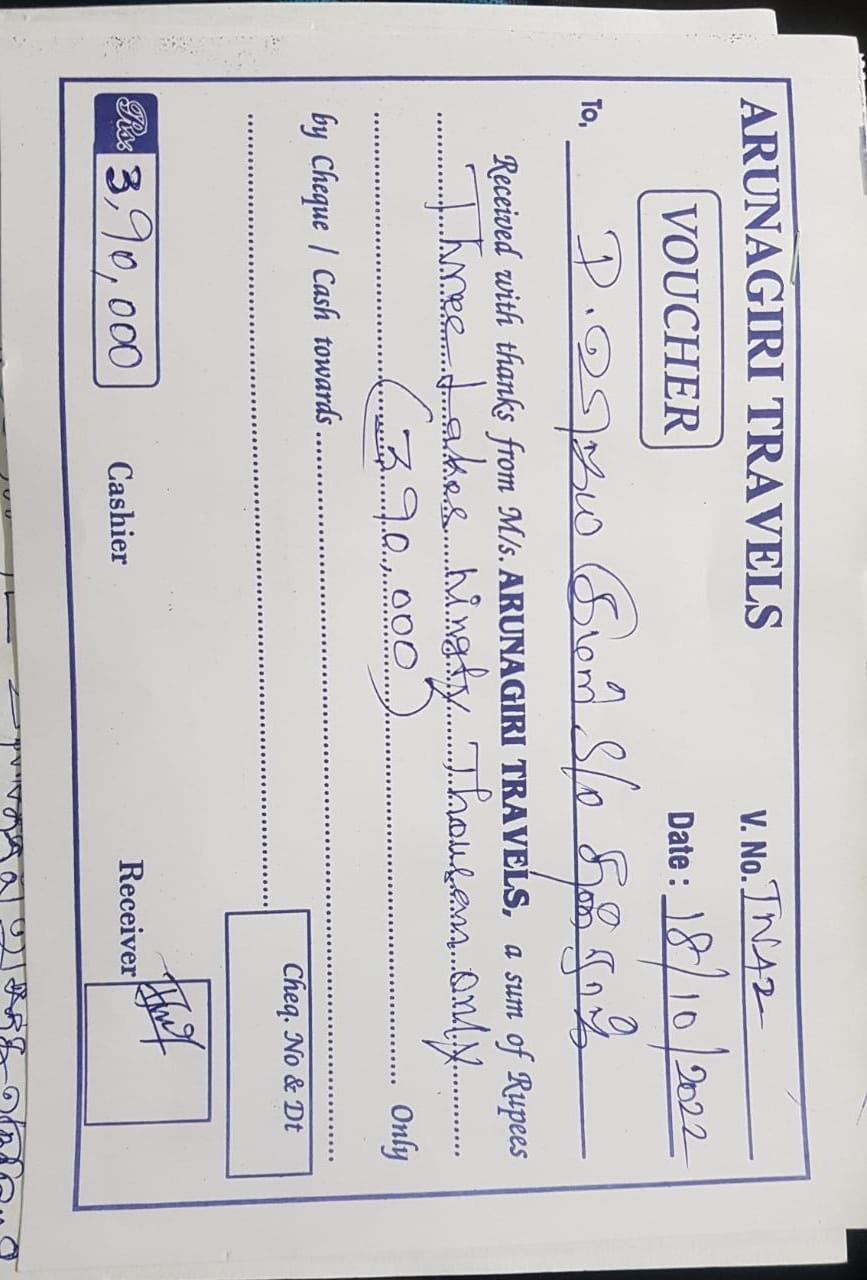 ARUNAGIRI TRAVELS
V. No. TN42
VOUCHER
Date : 18/10/2022
To, P. S/o
Received with thanks from M/s. ARUNAGIRI TRAVELS, a sum of Rupees
Three Lakes Ningty Thousand only
(3,90,000) Only
by Cheque / Cash towards
Cheq. No & Dt
Rs. 3,90,000 Cashier Receiver